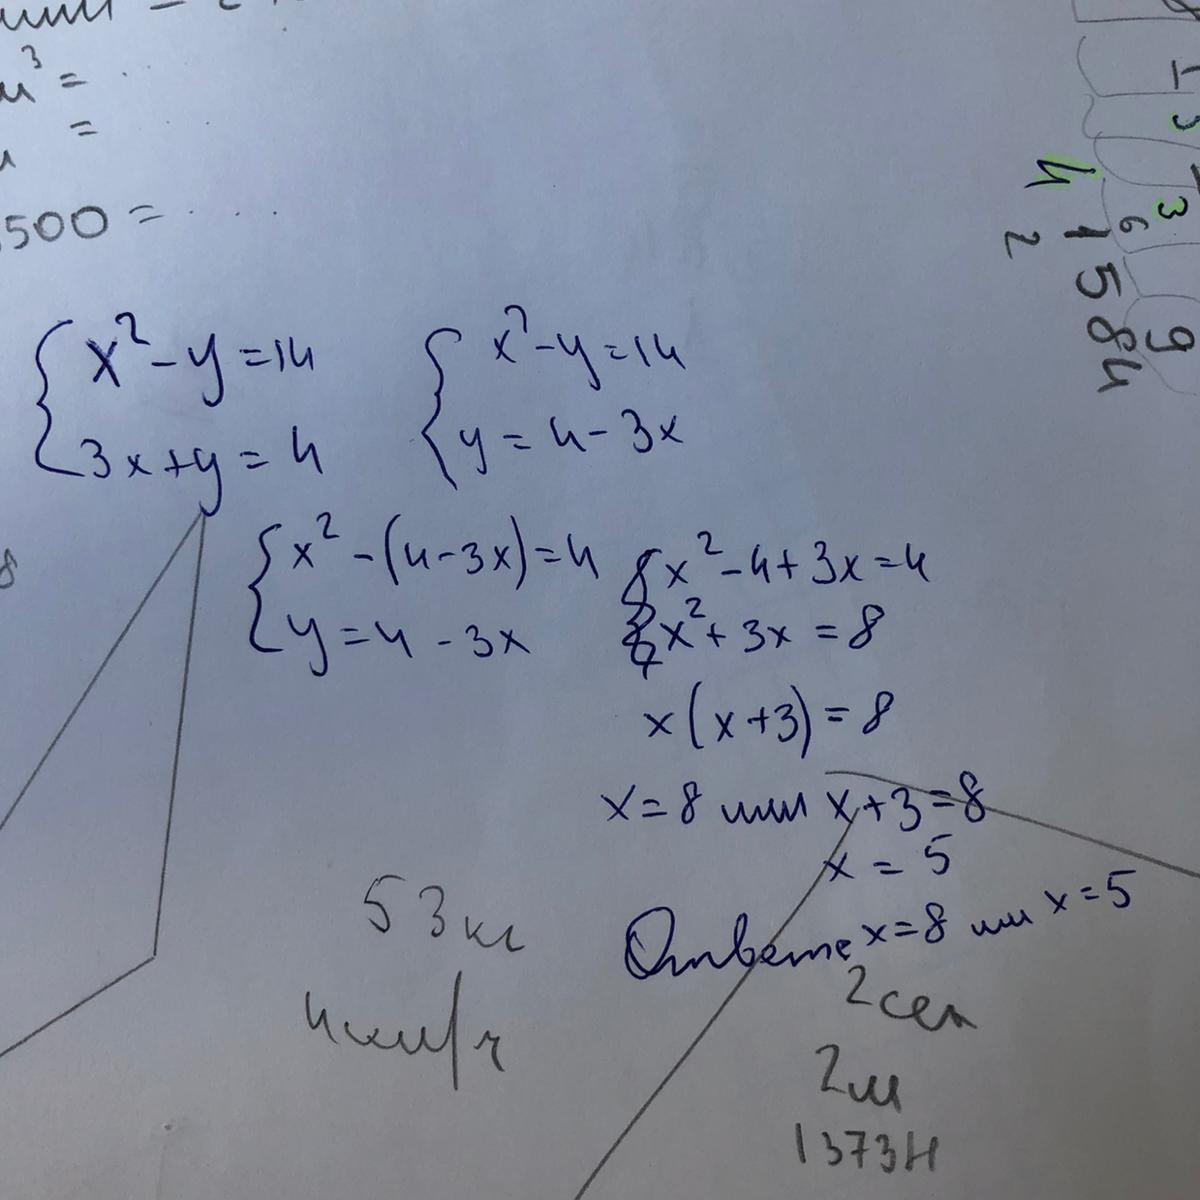 м³ =
=
500 =
{ x² - y = 14
3x + y = 4
{ x² - y = 14
y = 4 - 3x
{ x² - (4 - 3x) = 4
y = 4 - 3x
x² - 4 + 3x = 4
x² + 3x = 8
x(x + 3) = 8
x = 8 или x + 3 = 8
x = 5
Ответ x = 8 или x = 5
53 кг
4 км/ч
2 сек
2 м
1373 Н
4
2
1584
6
3
9
8